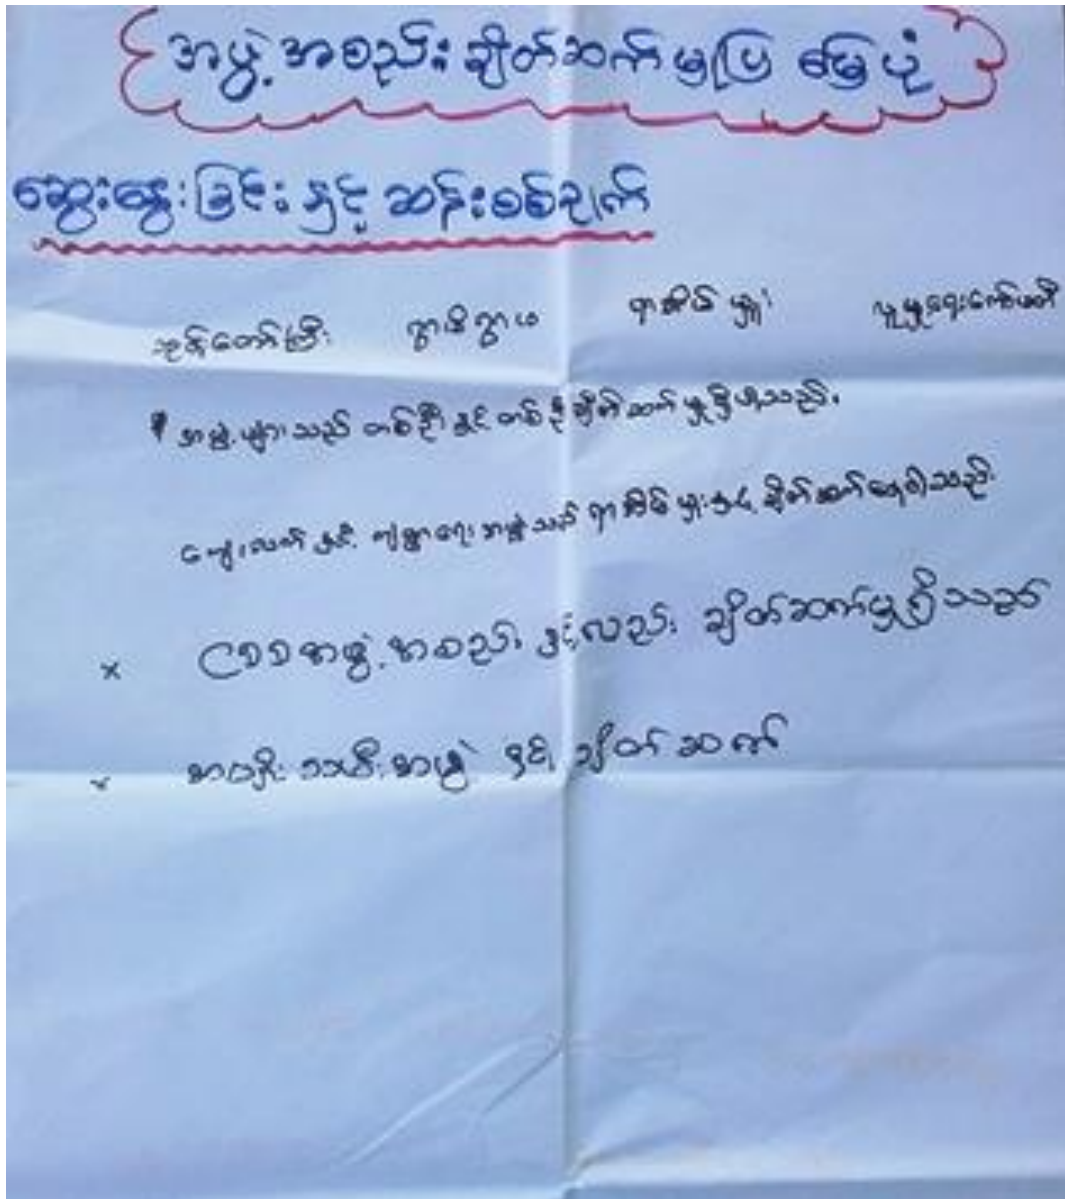 အဖွဲ့အစည်းချိတ်ဆက်မှုပြ မြေပုံ
ဆွေးနွေးခြင်းနှင့် ဆန်းစစ်ချက်
ဘုန်းတော်ကြီး ရွာမိရွာဖ ရာအိမ်မှူး လူမှုရေးကော်မတီ
အဖွဲ့များသည် တစ်ဦးနှင့်တစ်ဦးချိတ်ဆက်မှုရှိပါသည်။
ကျေးလက်နှင့် ကျဲရွာရေးအဖွဲ့သည် ရာအိမ်မှူးနှင့် ချိတ်ဆက်နေပါသည်။
x အဖွဲ့အစည်းနှင့်လည်း ချိတ်ဆက်မှုရှိသည်
အမျိုးသမီးအဖွဲ့နှင့် ချိတ်ဆက်